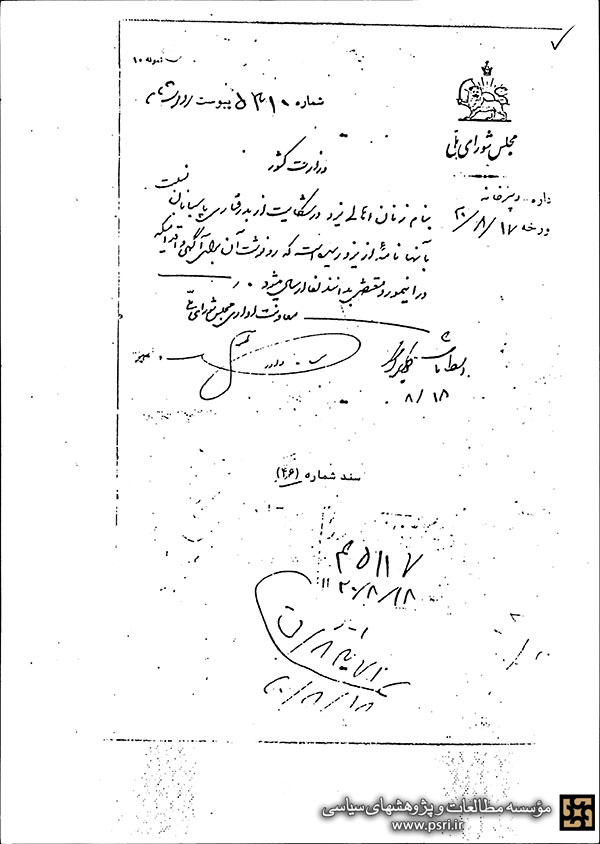 نمونه ۱۰
مجلس شورای ملّی
شماره پیوست رونوشت نامه
اداره دبیرخانه
مورخه ۲۰/۸/۱۷
وزارت کشور
بنام زنان اهالی یزد در شکایت از بدرفتاری پاسبانان نسبت
بآنها نامهٔ از یزد رسیده است که رونوشت آن برای آگهی و اقدامیکه
در اینمورد مقتضی بدانند لفاً ارسال میشود.
معاونت اداری مجلس شورای ملّی
۸/۱۸
سند شماره (۴۶)
۴۵۱۱۷
۲۰/۸/۱۸
۲۰/۸/۱۸
مؤسسه مطالعات و پژوهشهای سیاسی
www.psri.ir